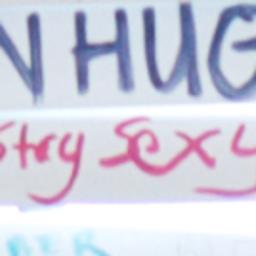 N HUG
stry Sexy
BER